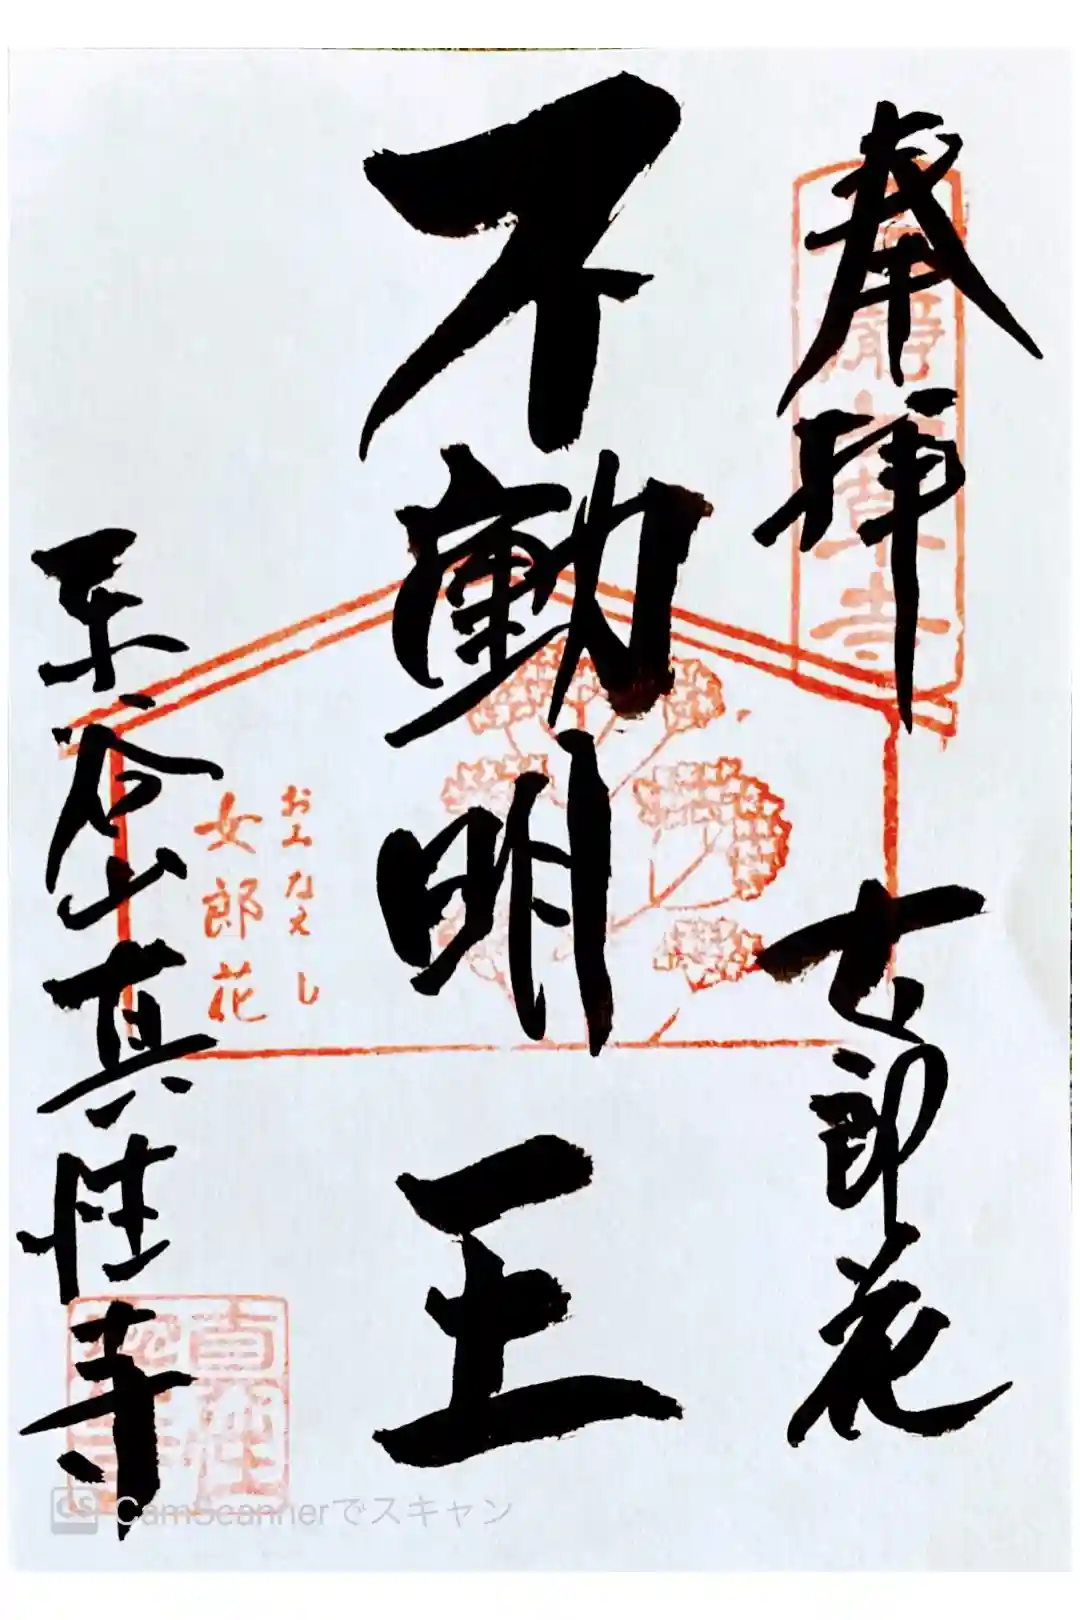 奉拝
女郎花
不動明王
おみなえし
女郎花
不谷山真性寺
CS CamScannerでスキャン